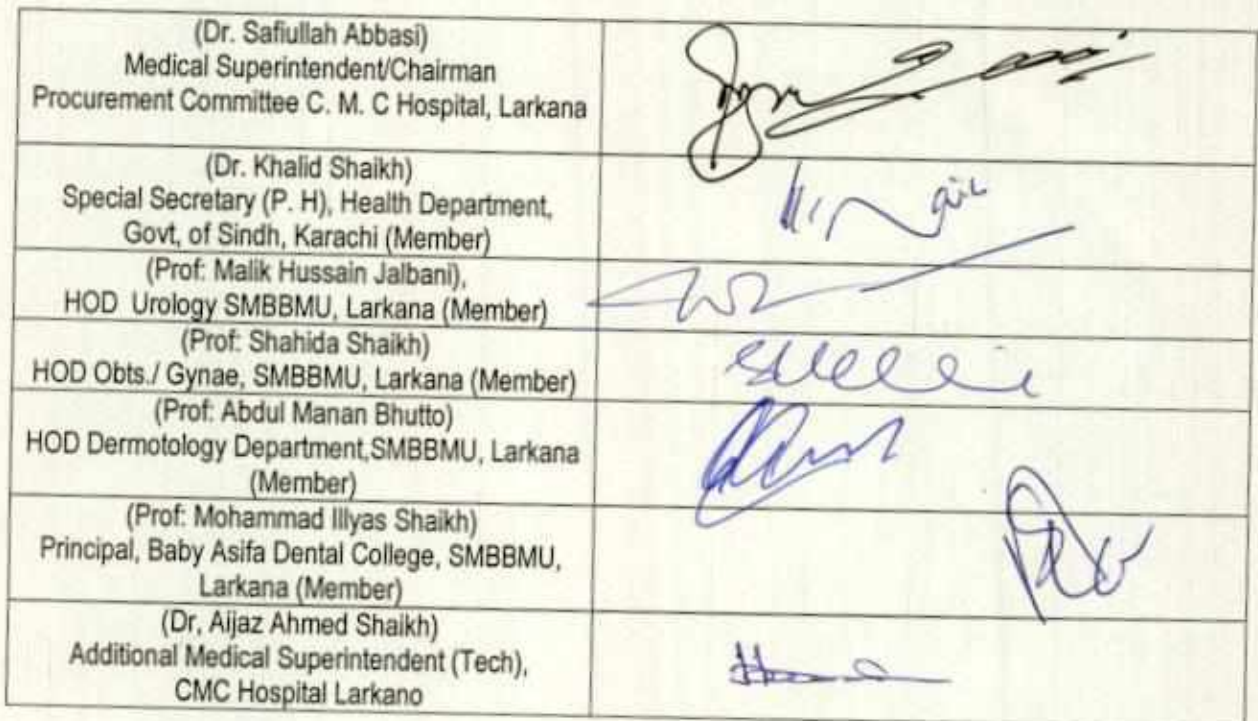 (Dr. Safiullah Abbasi)
Medical Superintendent/Chairman
Procurement Committee C. M. C Hospital, Larkana
(Dr. Khalid Shaikh)
Special Secretary (P. H), Health Department,
Govt, of Sindh, Karachi (Member)
(Prof: Malik Hussain Jalbani),
HOD Urology SMBBMU, Larkana (Member)
(Prof: Shahida Shaikh)
HOD Obts./ Gynae, SMBBMU, Larkana (Member)
(Prof: Abdul Manan Bhutto)
HOD Dermotology Department,SMBBMU, Larkana
(Member)
(Prof: Mohammad Illyas Shaikh)
Principal, Baby Asifa Dental College, SMBBMU,
Larkana (Member)
(Dr, Aijaz Ahmed Shaikh)
Additional Medical Superintendent (Tech),
CMC Hospital Larkano